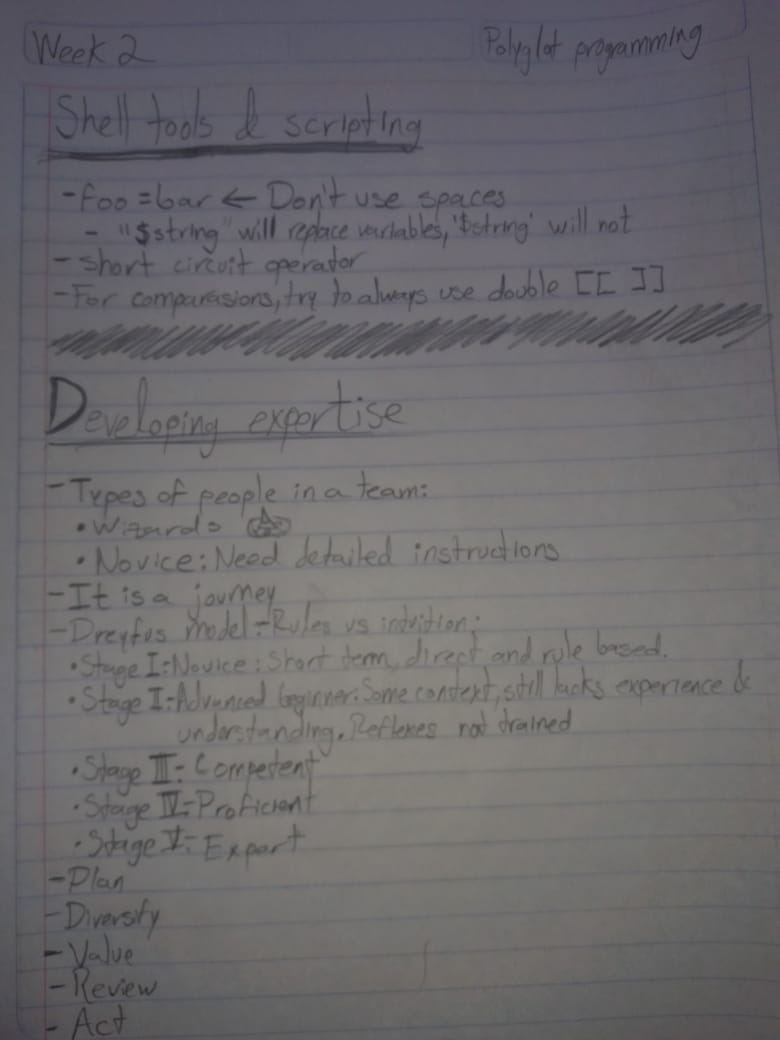 Week 2
Polyglot programming
Shell tools & scripting
- foo=bar ← Don't use spaces
- "$string" will replace variables, '$string' will not
- short circuit operator
- For comparasions, try to always use double [[ ]]
Developing expertise
- Types of people in a team:
• Wizards
• Novice: Need detailed instructions
- It is a journey
- Dreyfus model - Rules vs intuition:
• Stage I: Novice: Short term, direct and rule based.
• Stage I: Advanced beginner: Some context, still lacks experience &
understanding. Reflexes not trained
• Stage III: Competent
• Stage IV: Proficient
• Stage V: Expert
- Plan
- Diversify
- Value
- Review
- Act